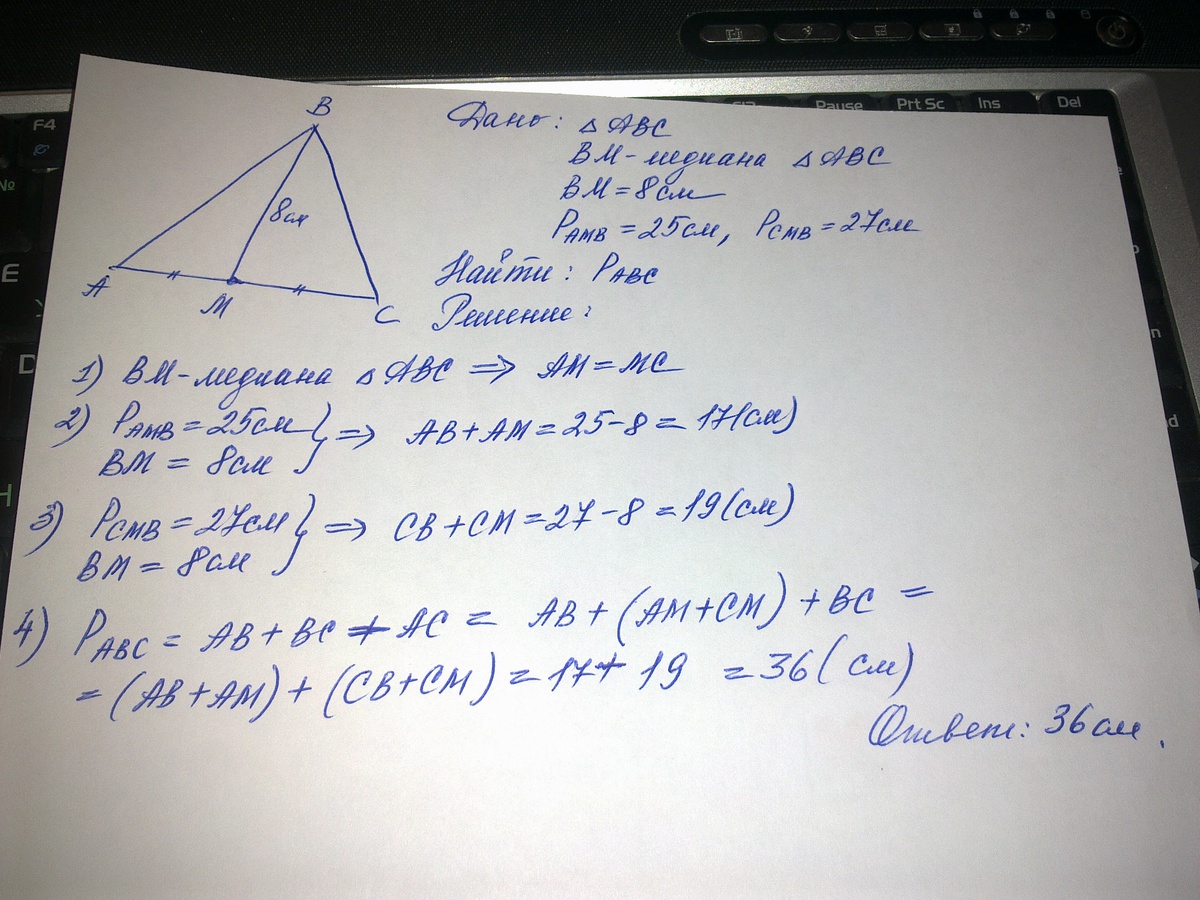 F4
Pause
Prt Sc
Ins
Del
№
E
D
B
8см
A
M
C
Дано: △ ABC
BM-медиана △ ABC
BM = 8см
P AMB = 25см, P CMB = 27см
Найти: P ABC
Решение:
1) BM-медиана △ ABC ⇒ AM = MC
2) P AMB = 25см } ⇒ AB + AM = 25 - 8 = 17(см)
BM = 8см
3) P CMB = 27см } ⇒ CB + CM = 27 - 8 = 19(см)
BM = 8см
4) P ABC = AB + BC + AC = AB + (AM + CM) + BC =
= (AB + AM) + (CB + CM) = 17 + 19 = 36 (см)
Ответ: 36см.